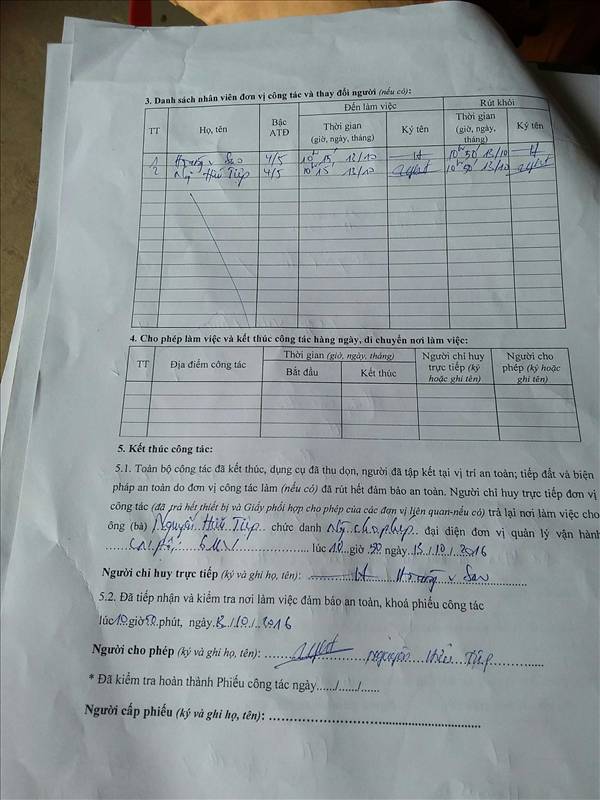 3. Danh sách nhân viên đơn vị công tác và thay đổi người (nếu có):
TT Họ, tên Bậc ATĐ Đến làm việc Rút khỏi
Thời gian (giờ, ngày, tháng) Ký tên Thời gian (giờ, ngày, tháng) Ký tên
1 Hoàng v Sao 4/5 10h 15' 13/10 10h 50' 13/10
2 Ng Hữu Tiệp 4/5 10h 15' 13/10 10h 50' 13/10
4. Cho phép làm việc và kết thúc công tác hàng ngày, di chuyển nơi làm việc:
TT Địa điểm công tác Thời gian (giờ, ngày, tháng) Người chỉ huy trực tiếp (ký hoặc ghi tên) Người cho phép (ký hoặc ghi tên)
Bắt đầu Kết thúc
5. Kết thúc công tác:
5.1. Toàn bộ công tác đã kết thúc, dụng cụ đã thu dọn, người đã tập kết tại vị trí an toàn; tiếp đất và biện
pháp an toàn do đơn vị công tác làm (nếu có) đã rút hết đảm bảo an toàn. Người chỉ huy trực tiếp đơn vị
công tác (đã trả hết thiết bị và Giấy phối hợp cho phép của các đơn vị liên quan-nếu có) trả lại nơi làm việc cho
ông (bà) Nguyễn Hữu Tiệp chức danh Ng cho phép đại diện đơn vị quản lý vận hành
lúc 10 giờ 50 ngày 13/10/2016
Người chỉ huy trực tiếp (ký và ghi họ, tên): Hoàng v Sao
5.2. Đã tiếp nhận và kiểm tra nơi làm việc đảm bảo an toàn, khoá phiếu công tác
lúc 10 giờ 50 phút, ngày 13/10/2016
Người cho phép (ký và ghi họ, tên): Nguyễn Hữu Tiệp
* Đã kiểm tra hoàn thành Phiếu công tác ngày....../....../......
Người cấp phiếu (ký và ghi họ, tên):